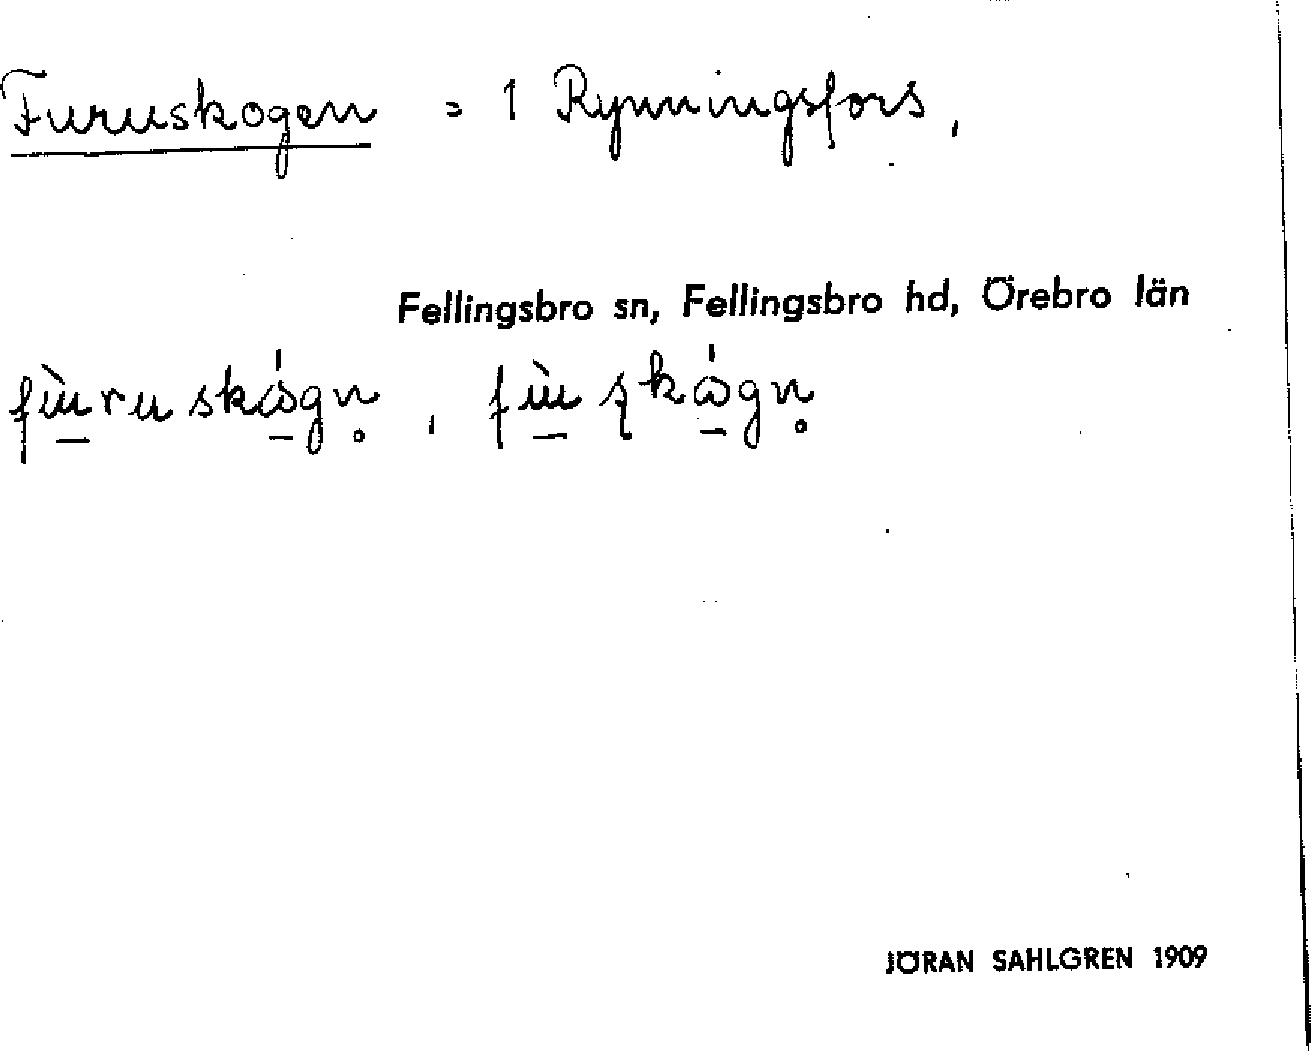 Furuskogen = 1 Rynningsfors,
Fellingsbro sn, Fellingsbro hd, Örebro län
fù̲ruskɷ̲́gn̥, fù̲ʂkɷ̲́gn̥
JÖRAN SAHLGREN 1909